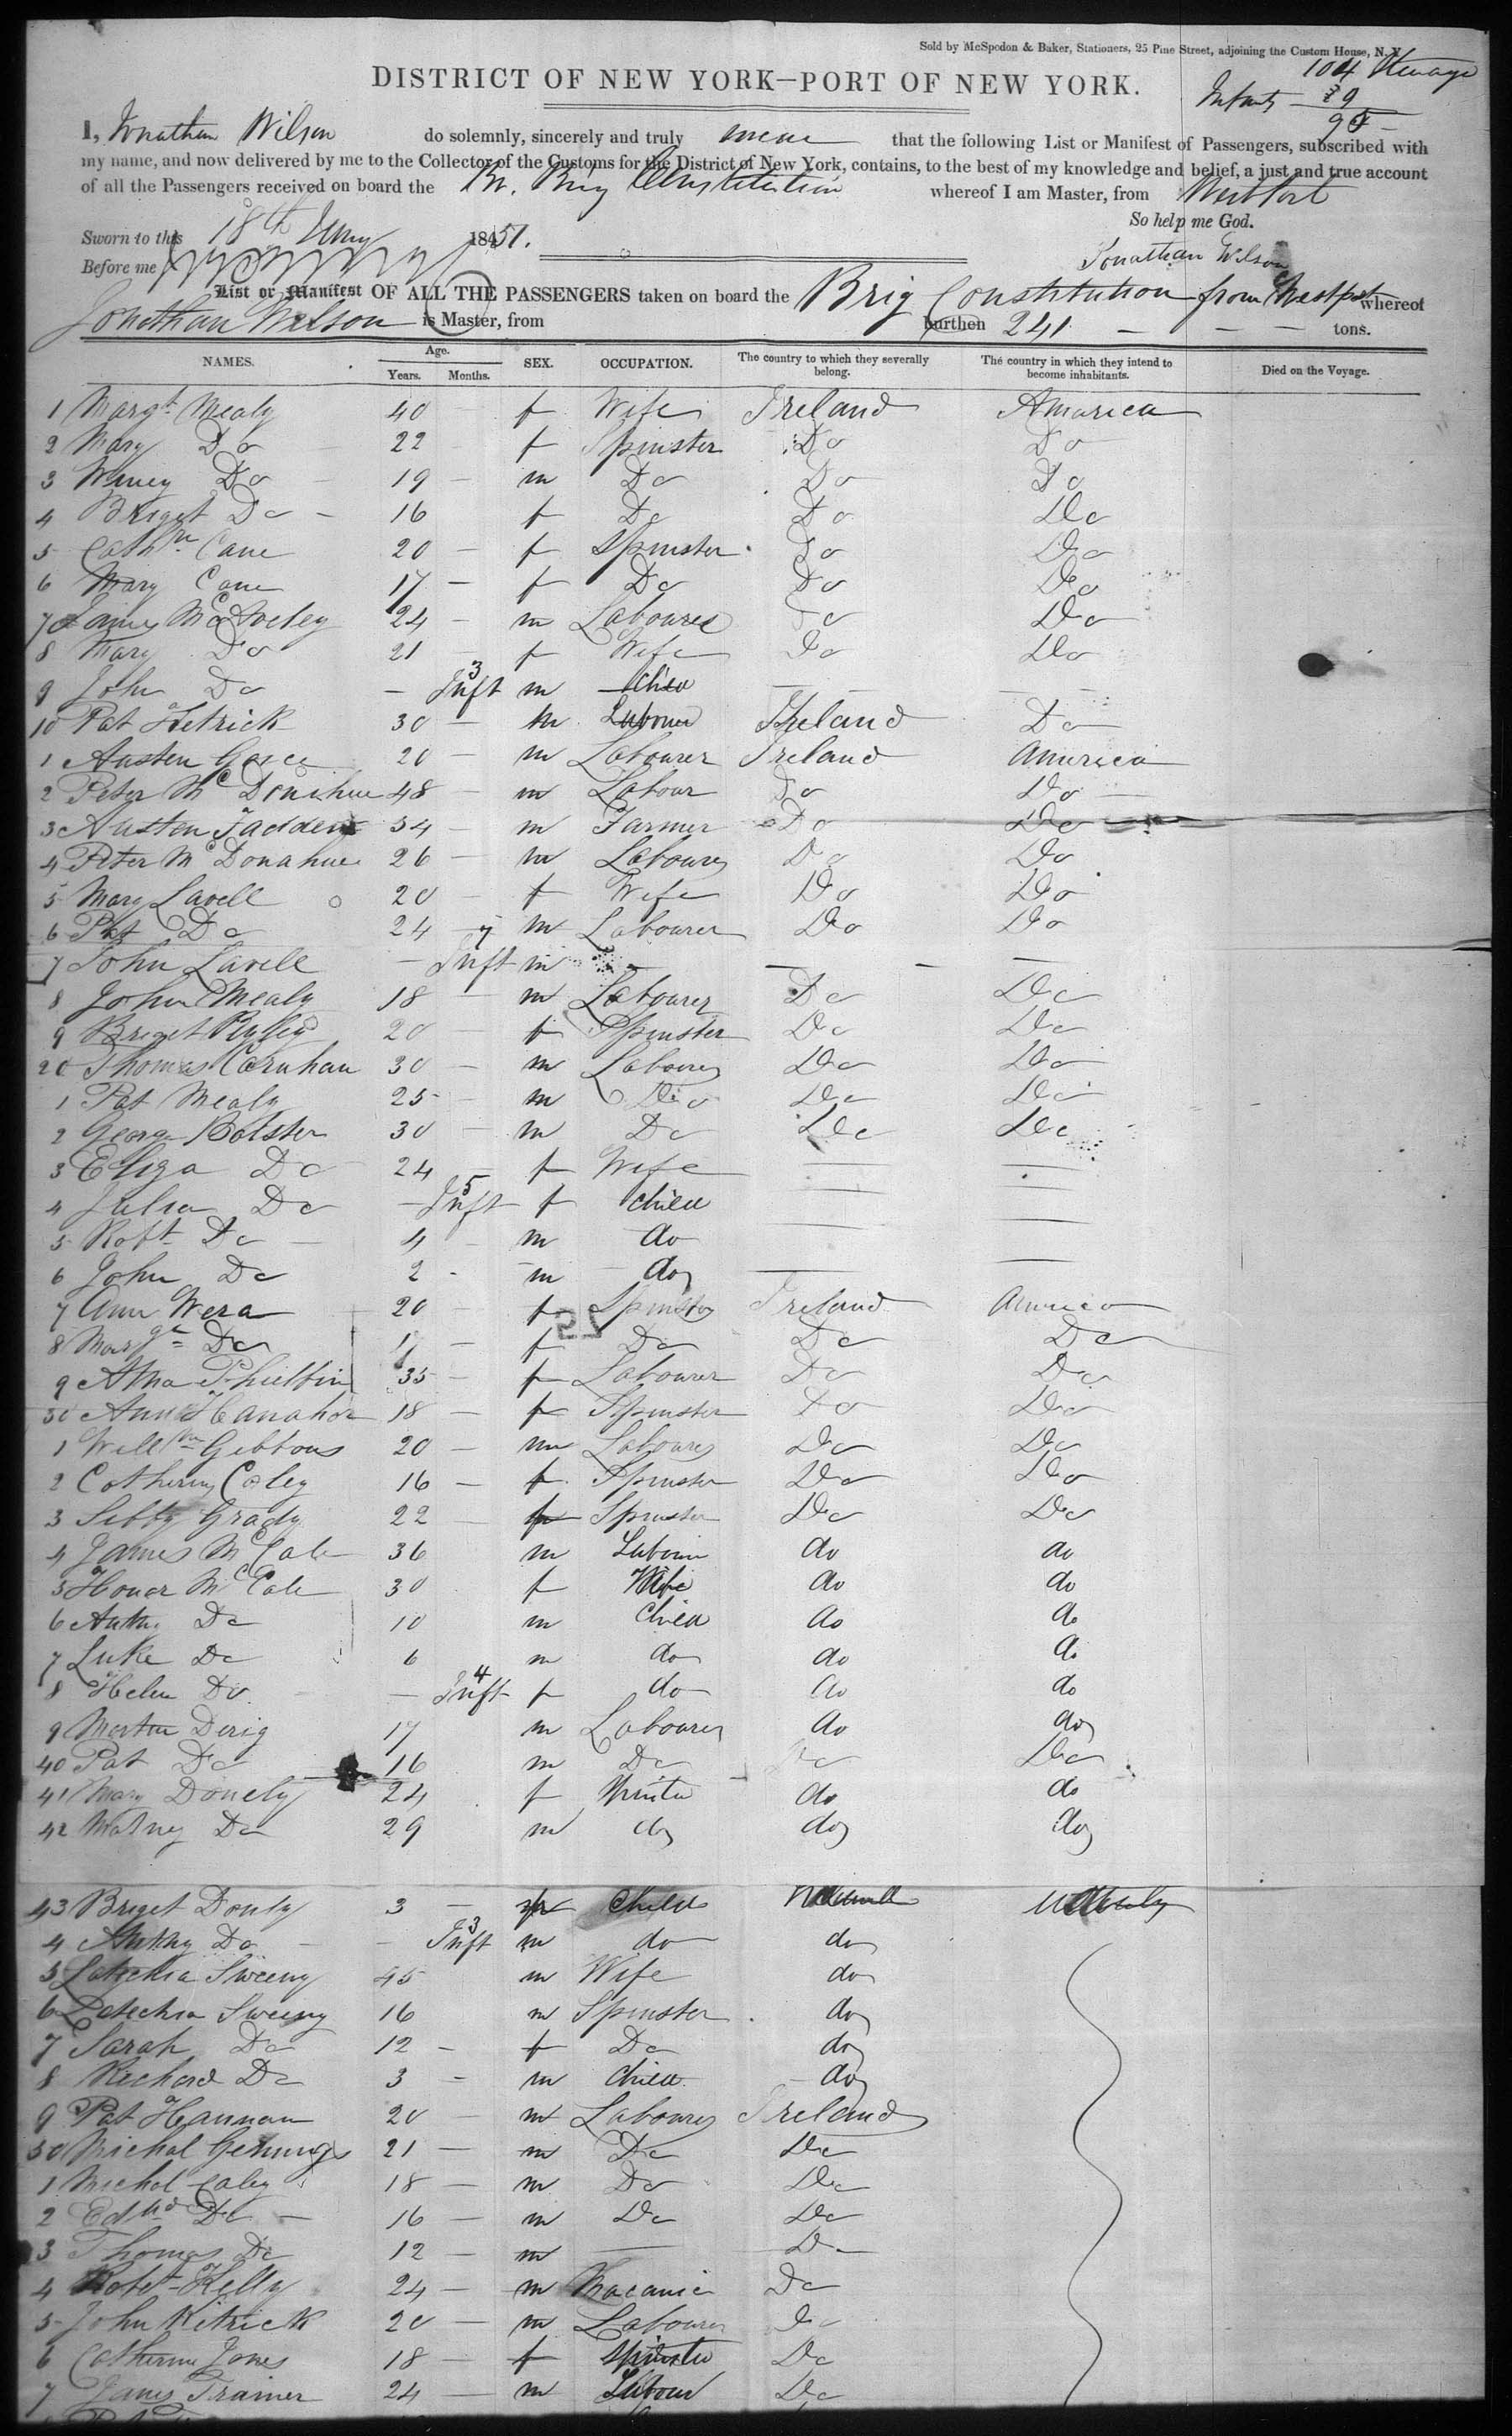 Sold by McSpedon & Baker, Stationers, 25 Pine Street, adjoining the Custom House, N. Y.
104 Steerage
DISTRICT OF NEW YORK—PORT OF NEW YORK.
Infants 9
95
I, Jonathan Wilson do solemnly, sincerely and truly swear that the following List or Manifest of Passengers, subscribed with
my name, and now delivered by me to the Collector of the Customs for the District of New York, contains, to the best of my knowledge and belief, a just and true account
of all the Passengers received on board the Br. Brig Constitution whereof I am Master, from Westport
So help me God.
Sworn to this 18th 1851.
Jonathan Wilson
Before me
List or Manifest OF ALL THE PASSENGERS taken on board the Brig Constitution from Westport whereof
Jonathan Wilson is Master, from burthen 241 tons.
NAMES. Age. Years. Months. SEX. OCCUPATION. The country to which they severally belong. The country in which they intend to become inhabitants. Died on the Voyage.
1 Margt Mealy 40 — f Wife Ireland America
2 Mary Do 22 f Spinster Do Do
3 Winey Do 19 — m Do Do Do
4 Briget Do — 16 f Do Do Do
5 Cathn Cane 20 — f Spinster Do Do
6 Mary Cane 17 — f Do Do Do
7 James 24 — m Labourer Do Do
8 Mary Do 21 f Wife Do Do
9 John Do — 3 Inft m Child — —
10 Pat Hetrick 30 — m Labourer Ireland Do
1 Austen 20 — m Labourer Ireland America
2 Peter McDonihue 48 — m Labour Do Do
3 Austen Fadden 34 — m Farmer Do Do
4 Peter McDonahue 26 — m Labourer Do Do
5 Mary Lavell 20 — f Wife Do Do
6 Pat Do 24 m Labourer Do Do
7 John Lavell — 7 Inft m — — —
8 John Mealy 18 — m Labourer Do Do
9 Briget 20 — f Spinster Do Do
20 Thomas Carnhan 30 — m Labourer Do Do
1 Pat Mealy 25 — m Do Do Do
2 George Bolster 30 — m Do Do Do
3 Eliza Do 24 f Wife — —
4 Julia Do — 5 Inft f Child — —
5 Robt Do — 4 m do — —
6 John Do 2 — m do — —
7 Ann Wera 20 — f Spinster Ireland America
8 Margt Do — f Do Do Do
9 Philbin 35 — f Labourer Do Do
30 Ann 18 — f Spinster Do Do
1 Willm Gibbons 20 — m Labourer Do Do
2 Catherin Coley 16 — f Spinster Do Do
3 Sibby Grady 22 — f Spinster Do Do
4 James McCale 36 m Labour do do
5 Honor McCale 30 f Wife do do
6 Antny Do 10 m Child do do
7 Luke Do 6 m do do do
8 Helen Do — 4 Inft f do do do
9 Martin Derig 17 m Labourer do do
40 Pat Do 16 m Do Do Do
41 Mary Donely 24 f do do
42 Do 29 m do do do
43 Briget Donly 3 — f Child
4 Antny Do — 3 Inft m do do
5 Letechia Sweeny 45 m Wife do
6 Letechia Sweeny 16 m Spinster do
7 Sarah Do 12 — f Do do
8 Richard Do 3 — m Child do
9 Pat Hannan 20 — m Labourer Ireland
50 Michal 21 — m Do Do
1 Michal Caley 18 — m Do Do
2 Edwd Do — 16 — m Do Do
3 Thomas Do 12 — m — Do
4 Robt Kelly 24 — m Macanic Do
5 John Kitrick 20 — m Labourer Do
6 Catherine Jones 18 — f Spinster Do
7 James Trainer 24 — m Labour Do